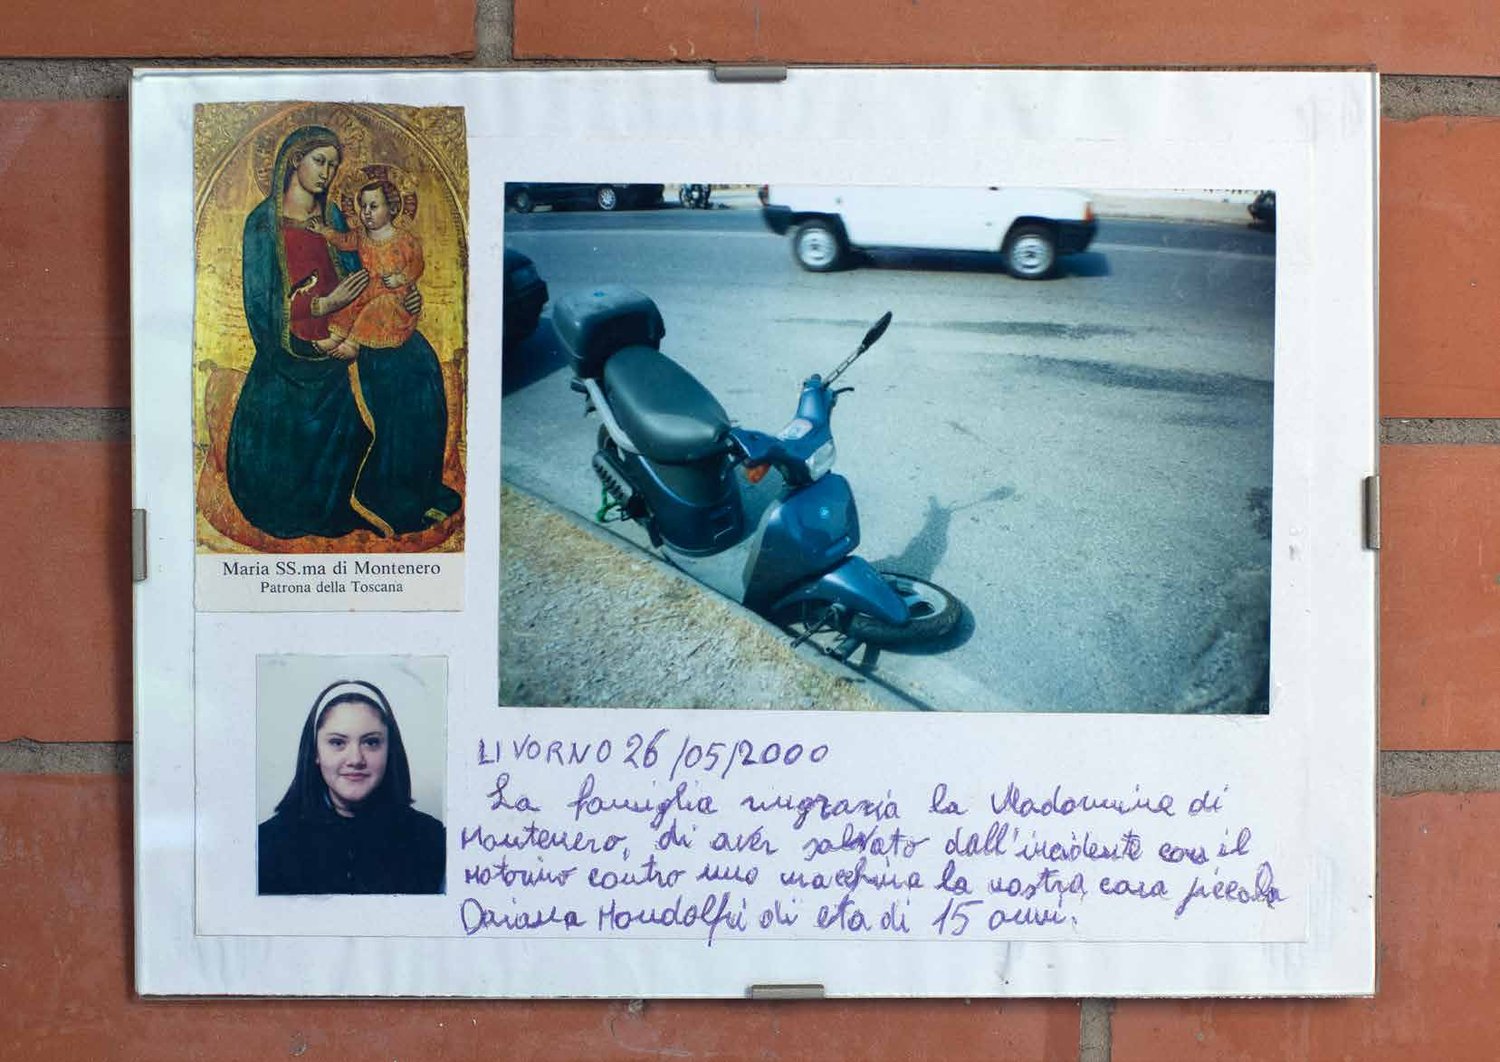 Maria SS.ma di Montenero
Patrona della Toscana
LIVORNO 26/05/2000
La famiglia ringrazia la Madonnina di
Montenero, di aver salvato dall'incidente con il
motorino contro una macchina la nostra cara piccola
Daiana Mondolfi di età di 15 anni.